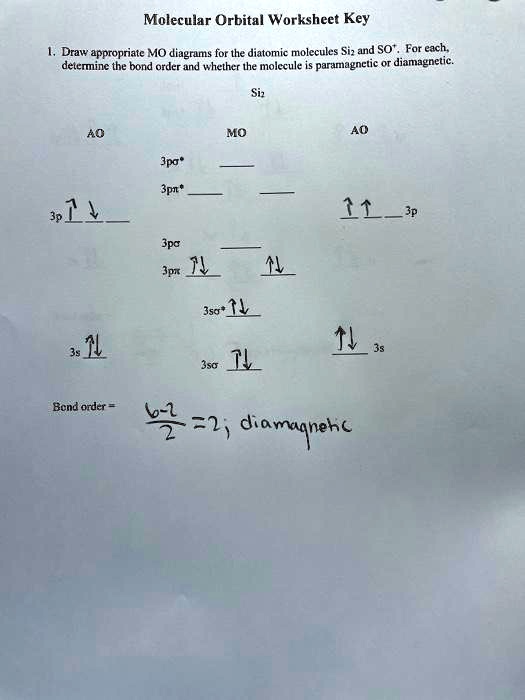 Molecular Orbital Worksheet Key
1. Draw appropriate MO diagrams for the diatomic molecules Si₂ and SO⁺. For each,
determine the bond order and whether the molecule is paramagnetic or diamagnetic.
Si₂
AO MO AO
3pσ*
3pπ*
3p ↑ ↓ ↑ ↑ 3p
3pσ
3pπ ↑↓ ↑↓
3sσ* ↑↓
3s ↑↓ ↑↓ 3s
3sσ ↑↓
Bond order = 6-2/2 = 2; diamagnetic